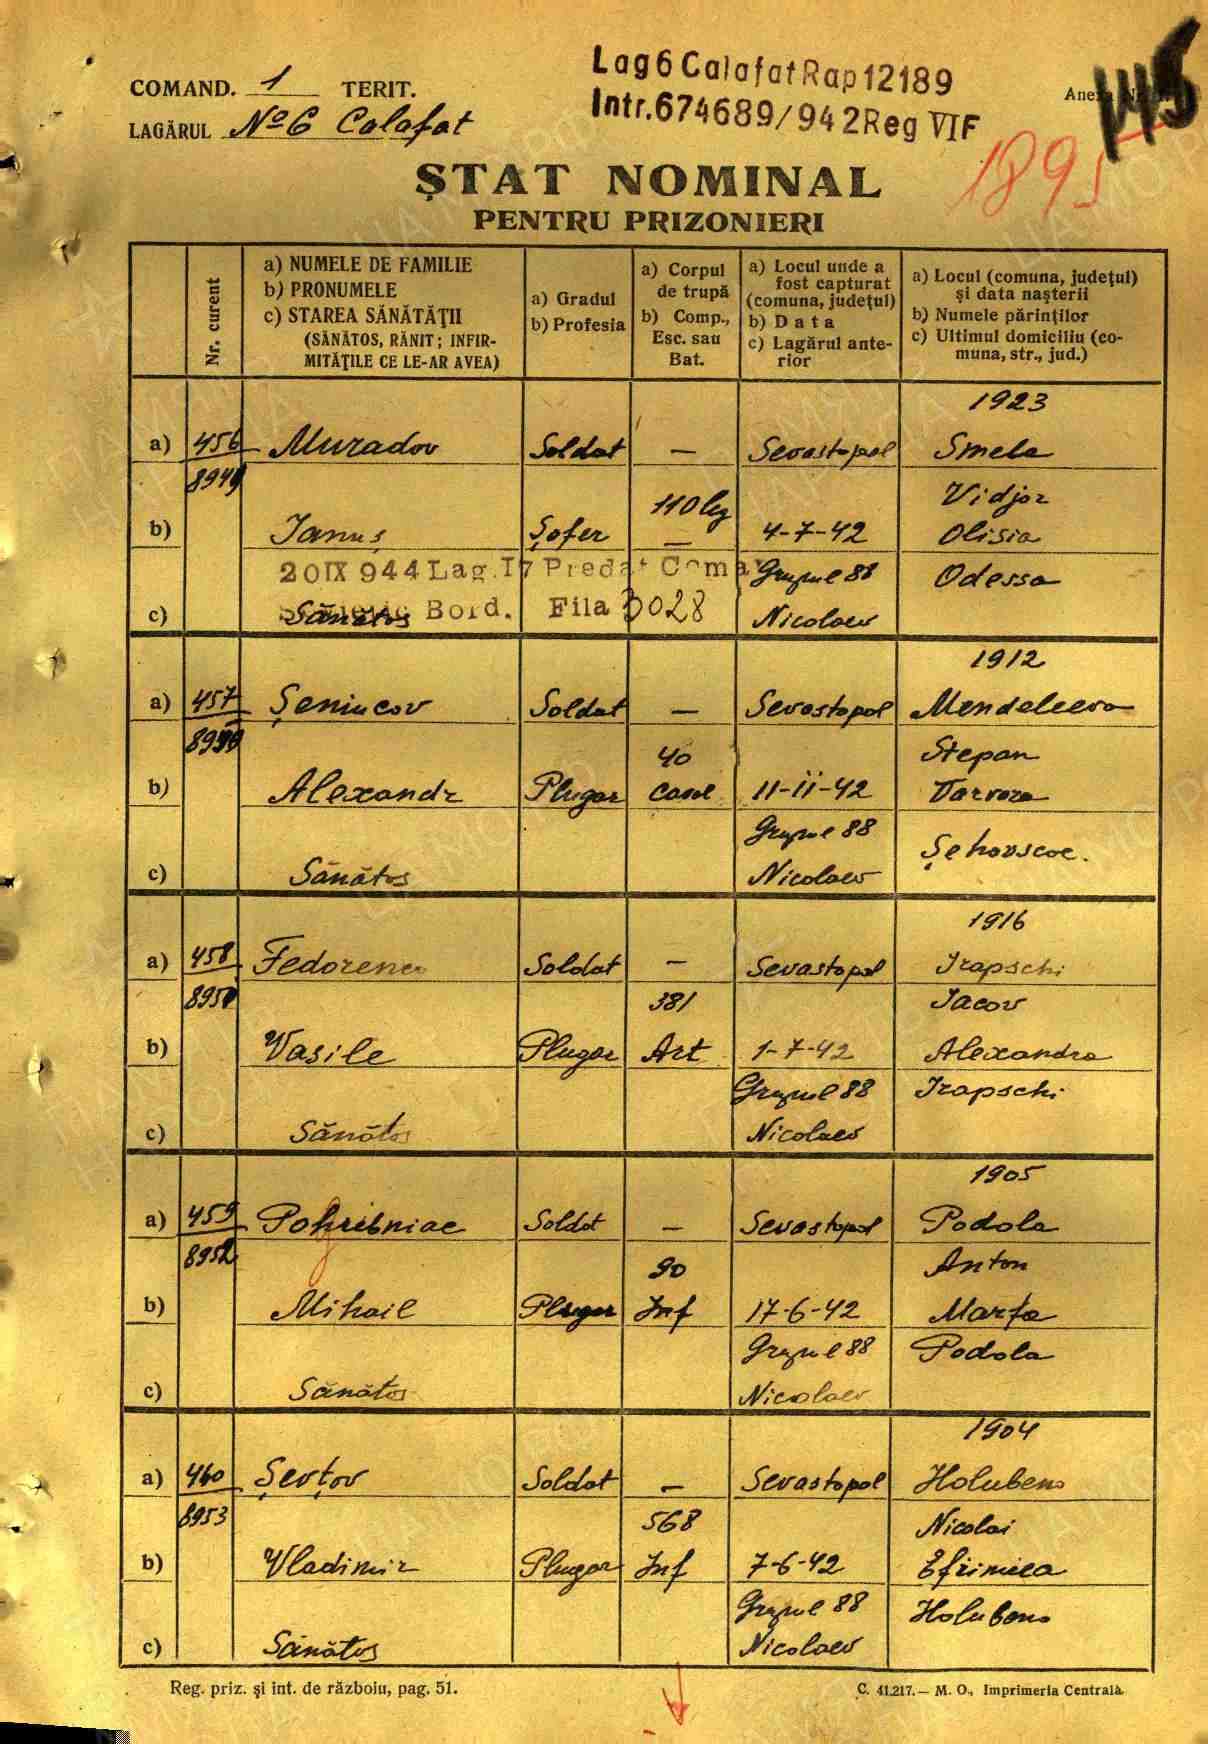 Lag 6 Calafat Rap 12189
Intr. 674689/942 Reg VI F
COMAND. 1 TERIT.
LAGĂRUL No 6 Calafat
Anexa
145
1895
ȘTAT NOMINAL
PENTRU PRIZONIERI
Nr. curent
a) NUMELE DE FAMILIE
b) PRONUMELE
c) STAREA SĂNĂTĂȚII
(SĂNĂTOS, RĂNIT; INFIR-
MITĂȚILE CE LE-AR AVEA)
a) Gradul
b) Profesia
a) Corpul
de trupă
b) Comp.,
Esc. sau
Bat.
a) Locul unde a
fost capturat
(comuna, județul)
b) Data
c) Lagărul ante-
rior
a) Locul (comuna, județul)
și data nașterii
b) Numele părinților
c) Ultimul domiciliu (co-
muna, str., jud.)
1923
a) 456 Muradov Soldat — Sevastopol Smela
8949
110 Vidjor
b) Ianuș Șofer — 4-7-42 Olisia
20 IX 944 Lag. 17 Predat Coman Grupul 88 Odessa
c) Sănătos Bord. Fila 3028 Nicolaev
1912
a) 457 Șeniucov Soldat — Sevastopol Mendeleeva
40 Stepan
b) Alexandr Plugar 11-II-42
Grupul 88
c) Sănătos Nicolaev
1916
a) 458 Soldat — Sevastopol Irapschi
381 Iacov
b) Vasile Plugar Art 1-7-42 Alexandra
Grupul 88 Irapschi
c) Sănătos Nicolaev
1905
a) 459 Pohribniac Soldat — Sevastopol Podola
8952
90 Anton
b) Mihail Plugar Inf 17-6-42 Marfa
Grupul 88 Podola
c) Sănătos Nicolaev
1904
a) 460 Șevțov Soldat — Sevastopol Holubeno
8953
568 Nicolai
b) Vladimir Plugar Inf 7-6-42 Efrimiea
Grupul 88 Holubeno
c) Sănătos Nicolaev
Reg. priz. și int. de războiu, pag. 51.
C. 41.217. — M. O., Imprimeria Centrală.